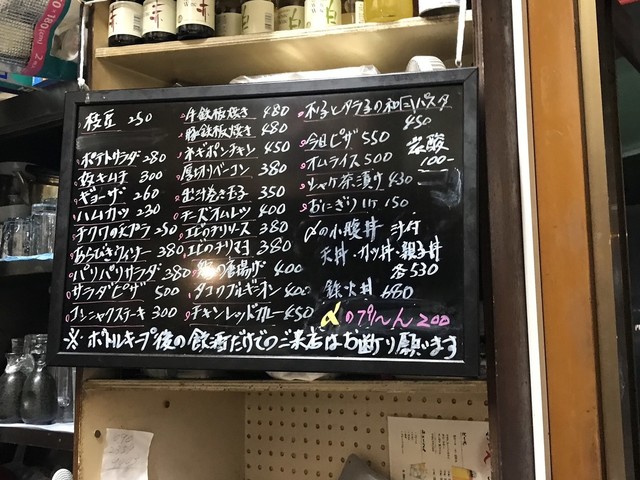 枝豆 250
ポテトサラダ 280
キムチ 300
ギョーザ 260
ハムカツ 230
チクワの天プラ 250
あらびきウィンナー 380
パリパリサラダ 380
サラダピザ 500
コンニャクステーキ 300
牛鉄板焼き 480
豚鉄板焼き 480
ネギポンチキン 450
厚切りベーコン 380
出汁巻き玉子 350
チーズオムレツ 400
エビのチリソース 380
エビのチリマヨ 380
の唐揚げ 400
タコのブルギニオン 400
チキンレッドカレー 450
タラ子の和風パスタ
450
今日ピザ 550
炭酸
100-
オムライス 500
シャケ茶漬け 430
おにぎり 1ケ 150
〆の小腹丼 汁付
天丼・カツ丼・親子丼
各530
鉄火丼 680
〆のプリ〜ん 200
※ボトルキープ後の飲酒だけでのご来店はお断り願います